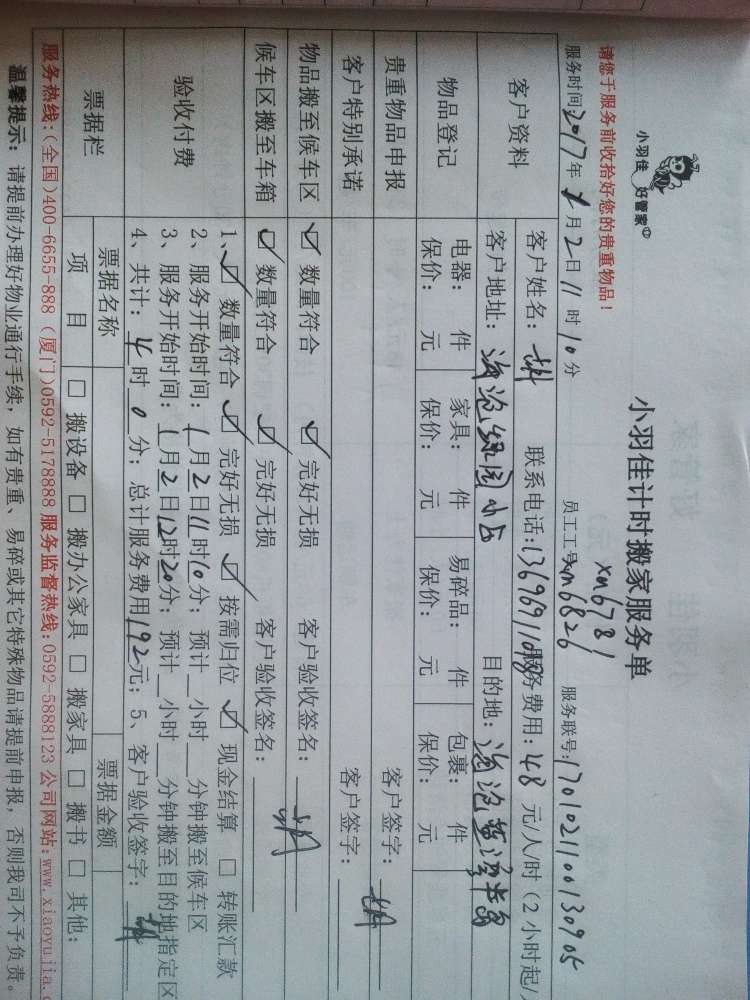 小羽佳 好管家
小羽佳计时搬家服务单
请您于服务前收拾好您的贵重物品！
xm6781
服务时间2017年1月2日11时10分 员工工号xm6826 服务联号:1701021100130905
客户资料 客户姓名： 联系电话:13696911018 服务费用:48元/人/时（2小时起/
客户地址：海沧绿园小区 目的地：海沧
物品登记 电器： 件 家具： 件 易碎品： 件 包裹： 件
保价： 元 保价： 元 保价： 元 保价： 元
贵重物品申报 客户签字：
客户特别承诺 客户签字：
物品搬至候车区 ☑ 数量符合 ☑ 完好无损 客户验收签名：
候车区搬至车箱 ☑ 数量符合 ☑ 完好无损 客户验收签名：
验收付费 1、☑ 数量符合 ☑ 完好无损 ☑ 按需归位 ☑ 现金结算 □ 转账汇款
2、服务开始时间：1月2日11时10分；预计 小时 分钟搬至候车区
3、服务开始时间：1月2日12时20分；预计 小时 分钟搬至目的地指定区
4、共计：4时0分；总计服务费用192元；5、客户验收签字：
票据栏 票据名称 票据金额
项 目 □ 搬设备 □ 搬办公家具 □ 搬家具 □ 搬书 □ 其他：
服务热线:(全国)400-6655-888（厦门)0592-5178888 服务监督热线:0592-5888123 公司网站:www.xiaoyujia.c
温馨提示：请提前办理好物业通行手续，如有贵重、易碎或其它特殊物品请提前申报，否则我司不予负责。